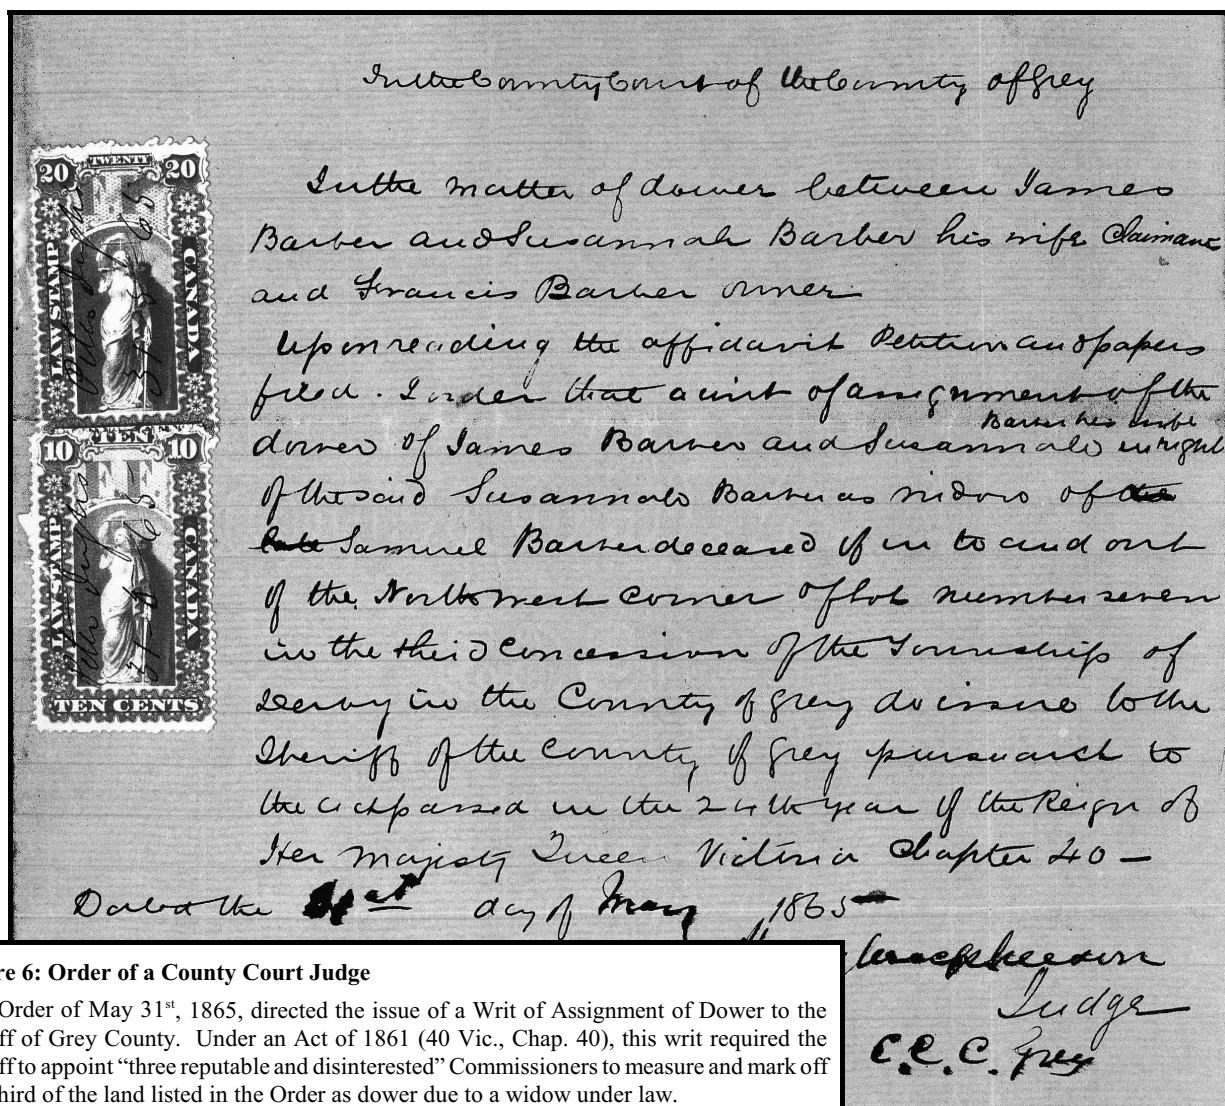 In the County Court of the County of Grey
In the matter of dower between James
Barber and Susannah Barber his wife Claimant
and Francis Barber owner
Upon reading the affidavit Petition and papers
filed. I order that a writ of assignment of the
Barber his wife
dower of James Barber and Susannah in right
of the said Susannah Barber as widow of the
late Samuel Barber deceased of in to and out
of the North west corner of lot number seven
in the third Concession of the Township of
Derby in the County of Grey do issue to the
Sheriff of the County of Grey pursuant to
the act passed in the 24th year of the Reign of
Her Majesty Queen Victoria Chapter 40 —
Dated the 31st day of May 1865
Macpherson
Judge
C.C.C. Grey
20 TWENTY 20
LAW STAMP
CANADA
10 TEN 10
F.F.
LAW STAMP
CANADA
TEN CENTS
re 6: Order of a County Court Judge
Order of May 31st, 1865, directed the issue of a Writ of Assignment of Dower to the
ff of Grey County. Under an Act of 1861 (40 Vic., Chap. 40), this writ required the
ff to appoint “three reputable and disinterested” Commissioners to measure and mark off
hird of the land listed in the Order as dower due to a widow under law.